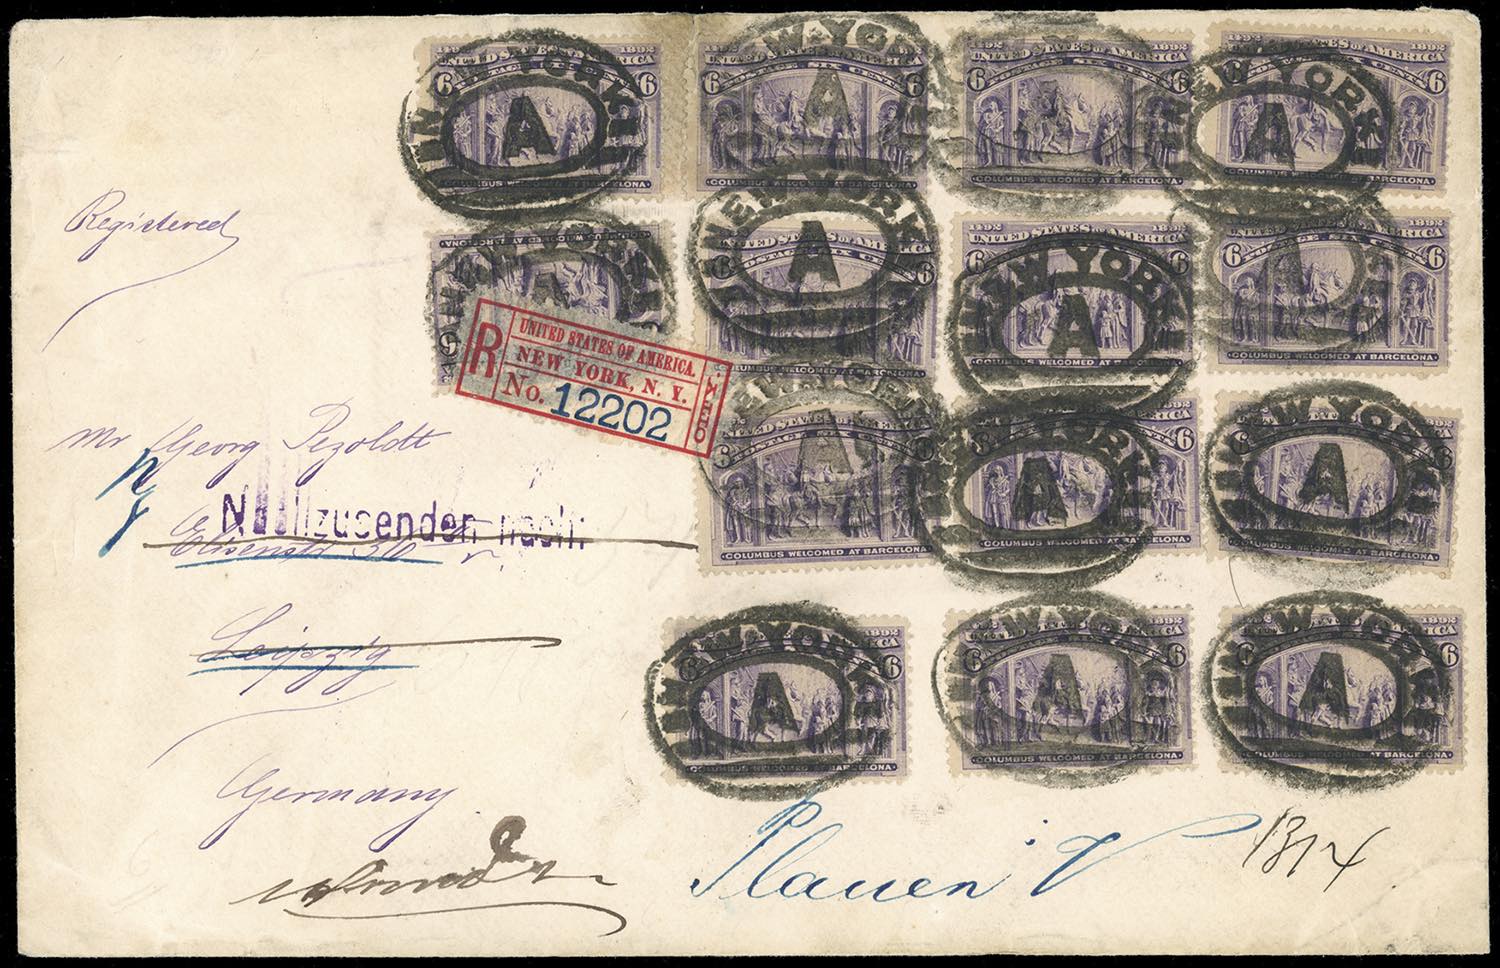 1492 1892
UNITED STATES OF AMERICA
POSTAGE SIX CENTS
6 6
COLUMBUS WELCOMED AT BARCELONA
NEW YORK
A
Registered
R
UNITED STATES OF AMERICA.
NEW YORK, N. Y.
No. 12202
Mr Georg Pezoldt
Nachzusenden nach:
Elisenstr 30
Leipzig
Germany
Plauen i/V